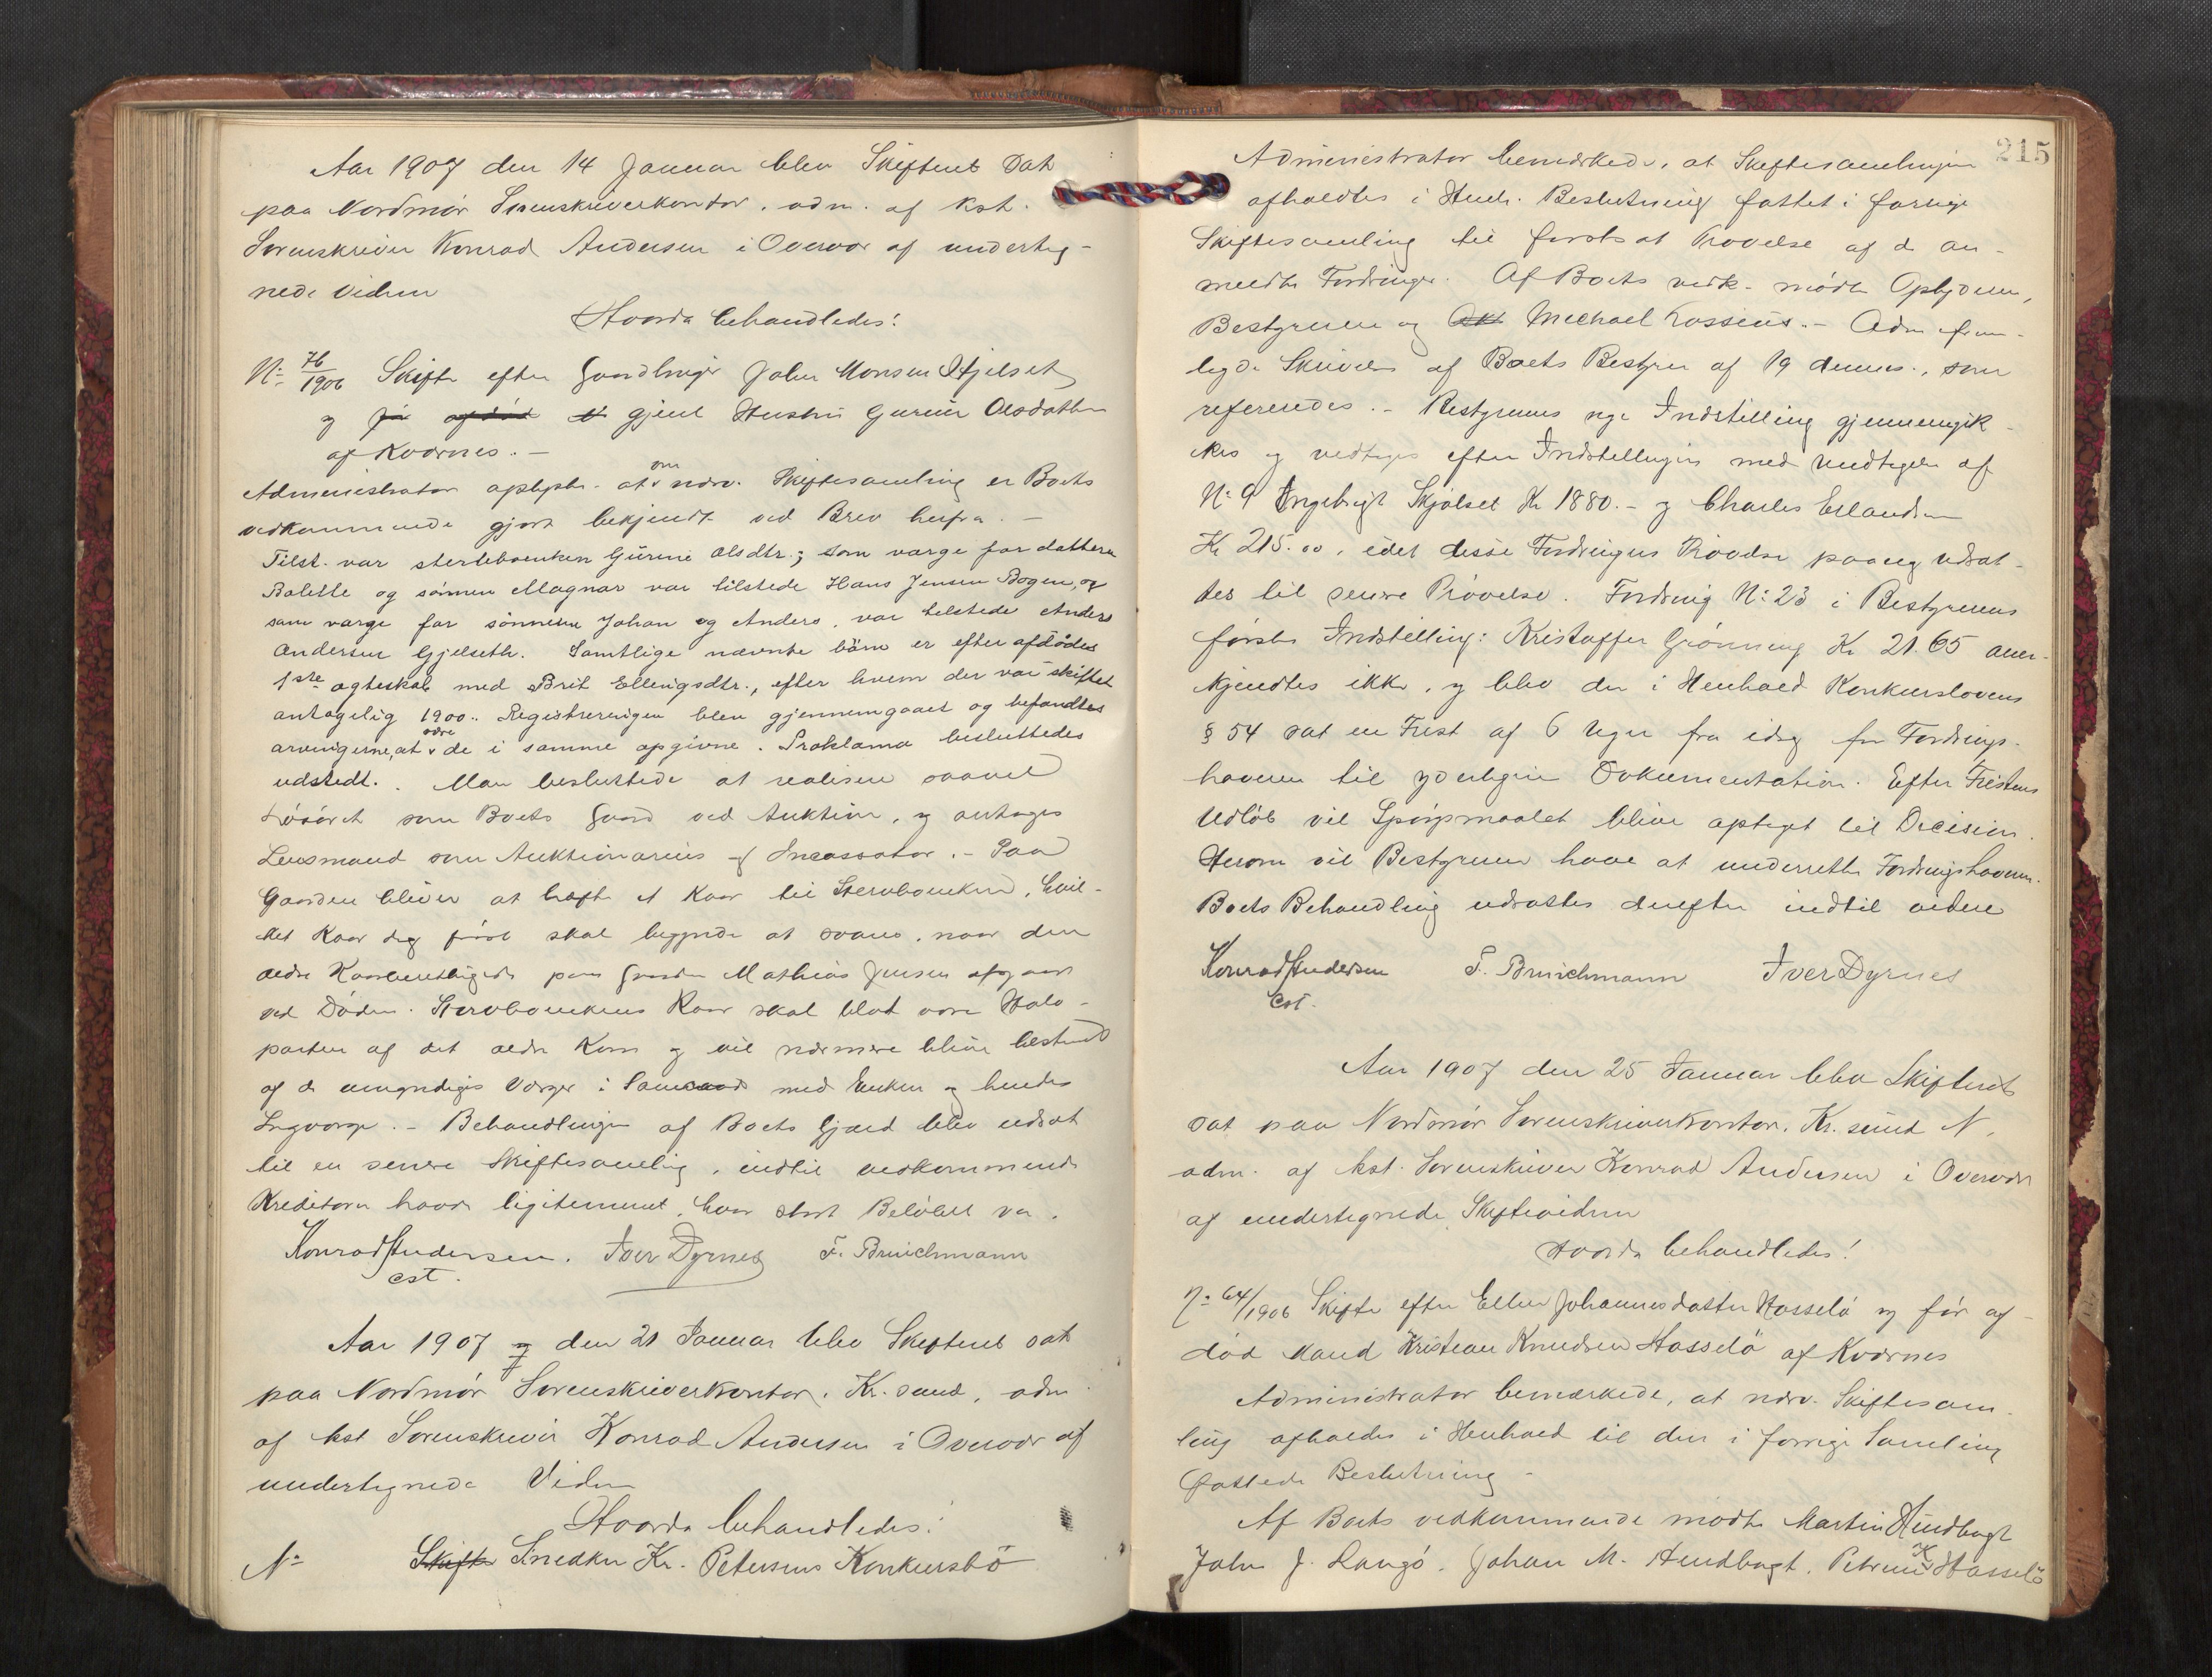 Aar 1907 den 14 Januar blev Skifteret sat
paa Nordmør Sorenskriverkontor, adm. af kst.
Sorenskriver Konrad Andersen i Overvær af underteg-
nede Vidner
Hvorda behandledes:
No 76/1906 Skifte efter Gaardbruger John Monsen Gjelset
og før afdød gjenl Hustru Gurine Olsdatter
af Kværnes. –
Administrator oplyste at om nærv. Skiftesamling er Boets
vedkommende gjort bekjendt ved Brev herfra. –
Tilst. var sterbboenken Gurine Olsdtr.; som værge for datteren
Bolette og sønnen Magnar var tilstede Hans Jensen Bogen, og
som værge for sønnerne Johan og Anders, var tilstede Anders
Andersen Gjelseth. Samtlige nævnte børn er efter afdødes
1ste ægteskab med Brit Ellingsdtr., efter hvem der var skiftet
antagelig 1900. Registreringen blev gjennemgaaet og befandtes
arvingerne, at være de i samme opgivne. Proklama besluttedes
udstedt. Man besluttede at realisere saavel
Løsøret som Boets Gaard ved Auktion, og antages
Lensmand som Auktionarius og Incassator. – Paa
Gaarden bliver at hæfte et Kaar til Stervboenken, hvil-
ket Kaar dog først skal begynde at svares, naar den
ældre Kaarberettigede paa Gaarden Mathias Jensen afgaar
ved Døden. Stervboenkens Kaar skal blot være Halv-
parten af det ældre Kaar og vil nærmere blive bestemt
af de umyndiges Værger i Samraad med Enken og hendes
Lagværge. – Behandlingen af Boets Gjæld blev udsat
til en senere Skiftesamling, indtil vedkommende
Kreditorer havde ligitimeret, hvor stort Beløbet var.
Konrad Andersen. Iver Dyrnes F. Bruichmann
cst.
Aar 1907 og den 21 Januar blev Skifteret sat
paa Nordmør Sorenskriverkontor, Kr.sund, adm
af kst Sorenskriver Konrad Andersen i Overvær af
undertegnede Vidner
Hvorda behandledes:
No Skifte Snedker Kr. Petersens Konkursbo
215
Administrator bemærkede, at Skiftesamlingen
afholdtes i Henh. Beslutning fattet i forrige
Skiftesamling til fortsat Prøvelse af de an-
meldte Fordringer. Af Boets vedk. mødte Ophjelm,
Bestyreren og Michael Lossius. – Adm frem-
lagde Skrivelse af Boets Bestyrer af 19 dennes, som
refereredes. – Bestyrerens nye Indstilling gjennemgik-
kes og vedtages efter Indstillingen med Undtagelse af
No 9 Ingebrigt Skjølset Kr 1880.– og Charles Erlandsen
Kr 215.00, idet disse Fordringers Prøvelse paany udsat-
tes til senere Prøvelse. Fordring No 23 i Bestyrerens
første Indstilling: Kristoffer Grønning Kr 21.65 aner-
kjendtes ikke, og blev der i Henhold Konkurslovens
§ 54 sat en Frist af 6 Uger fra idag for Fordrings-
haveren til yderligere Dokumentation. Efter Fristens
Udløb vil Spørgsmaalet blive optaget til Decision.
Herom vil Bestyreren have at underrette Fordringshaveren.
Boets Behandling udsattes derefter indtil videre
Konrad Andersen F. Bruichmann Iver Dyrnes
cst.
Aar 1907 den 25 Januar blev Skifteret
sat paa Nordmør Sorenskriverkontor, Kr.sund N,
adm. af kst. Sorenskriver Konrad Andersen i Overvær
af undertegnede Skiftevidner
Hvorda behandledes!
No 64/1906 Skifte efter Ellen Johannesdatter Hasselø og før af-
død Mand Kristian Knudsen Hasselø af Kværnes
Administrator bemærkede, at nærv. Skiftesam-
ling afholdes i Henhold til den i forrige Samling
fattede Beslutning –
Af Boets vedkommende mødte Martin Hendbugt
John J. Langø, Johan M. Hendbugt, Petrine K Hasselø